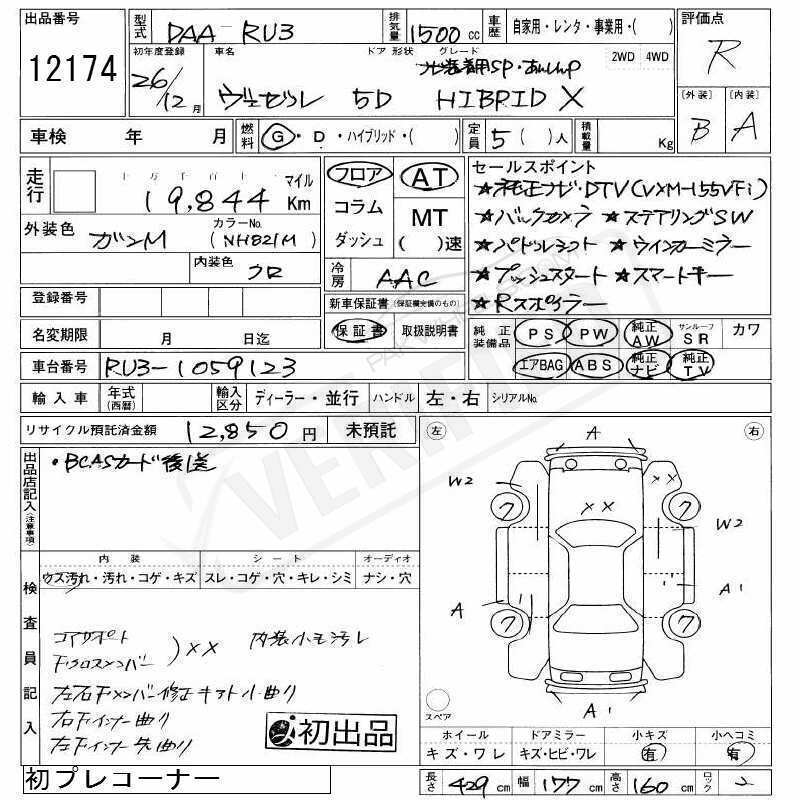 出品番号 型式 DAA-RU3 排気量 1500 cc 車歴 自家用・レンタ・事業用・( ) 評価点
12174 初年度登録 車名 ドア 形状 グレード 2WD 4WD R
26/12月 ヴェゼル 5D HIBRID X
〔外装〕 〔内装〕
B A
車検 年 月 燃料 G・D・ハイブリッド・( ) 定員 5 ( )人 積載量 Kg
走行 十万千百十 マイル
19,844 Km
フロア AT
コラム MT
ダッシュ ( )速
外装色 ガンM カラーNo. (NH821M)
内装色 クロ
冷房 AAC
セールスポイント
★純正ナビ・DTV(VXM-155VFi)
★バックカメラ ★ステアリングSW
★パドルシフト ★ウインカーミラー
★プッシュスタート ★スマートキー
★Rスポイラー
登録番号
新車保証書(保証欄完備のもの)
名変期限 月 日迄 保証書 取扱説明書
純正装備品 PS PW 純正AW サンルーフSR カワ
エアBAG ABS 純正ナビ 純正TV
車台番号 RU3-1059123
輸入車 年式(西暦) 輸入区分 ディーラー・並行 ハンドル 左・右 シリアルNo.
リサイクル預託済金額 12,850 円 未預託
出品店記入(注意事項)
・BCASカード後送
左 右
A
W2 XX XX
ワ ワ
W2
A A1
ワ ワ
A1
スペア
検査員記入
内装 シート オーディオ
ウス汚れ・汚れ・コゲ・キズ スレ・コゲ・穴・キレ・シミ ナシ・穴
コアサポート
下クロスメンバー )XX 内装小キズ汚レ
左右下メンバー修正キズ小曲り
右下インナー曲り
左下インナー先曲り
初出品
ホイール ドアミラー 小キズ 小ヘコミ
キズ・ワレ キズ・ヒビ・ワレ 有 有
初プレコーナー
長さ 429 cm 幅 177 cm 高さ 160 cm ロック 2
VERIFIED